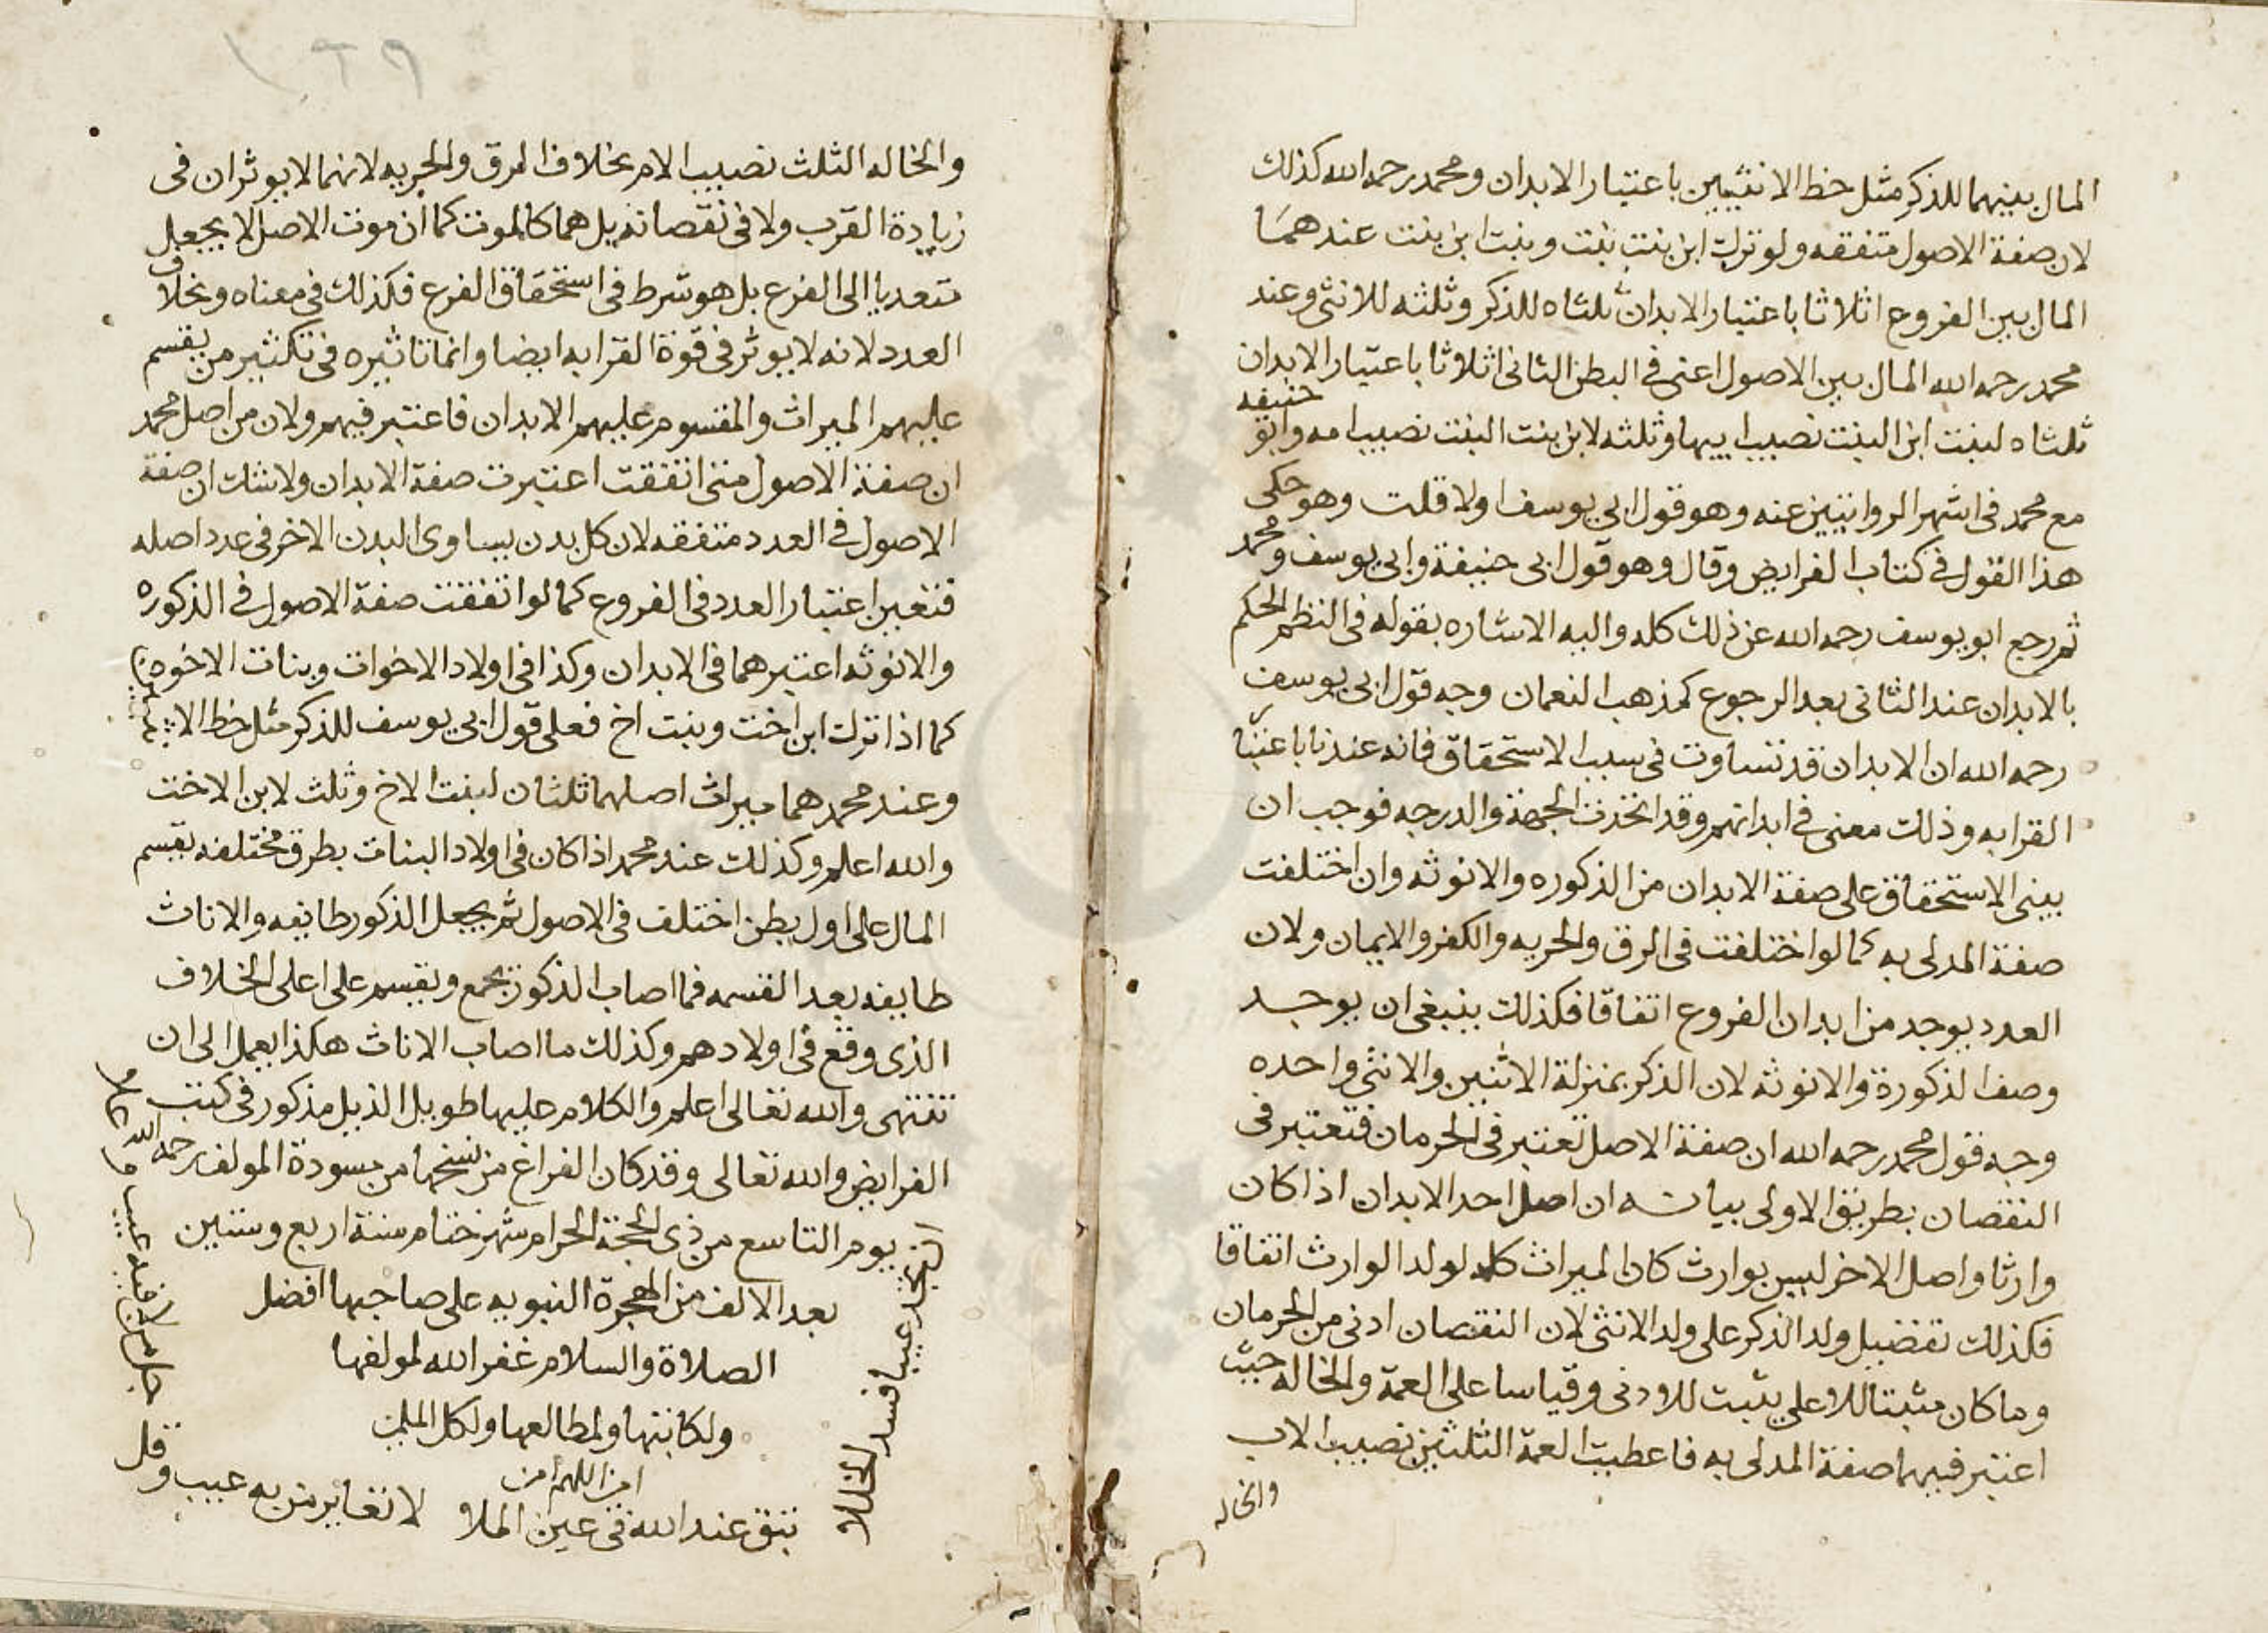 المال بينهما للذكر مثل حظ الانثيين باعتبار الابدان ومحمد رحمه الله كذلك
لان صفة الاصول متفقه ولو ترك ابن بنت بنت وبنت ابن بنت عندهما
المال بين الفروع اثلاثا باعتبار الابدان ثلثاه للذكر وثلثه للانثى وعند
محمد رحمه الله المال بين الاصول اعنى فى البطن الثانى اثلاثا باعتبار الابدان
ثلثاه لبنت ابن البنت نصيب ابيها وثلثه لابن بنت البنت نصيب امه وابو حنيفه
مع محمد فى اشهر الروايتين عنه وهو قول ابى يوسف اولا قلت وهو حكى
هذا القول فى كتاب الفرايض وقال وهو قول ابى حنيفة وابى يوسف ومحمد
ثم رجع ابو يوسف رحمه الله عن ذلك كله واليه الاشاره بقوله فى النظم المحكم
بالابدان عند الثانى بعد الرجوع كمذهب النعمان وجه قول ابى يوسف
رحمه الله ان الابدان قد تساوت فى سبب الاستحقاق فانه عندنا باعتبا
القرابه وذلك معنى فى ابدانهم وقد اتحدت الجهة والدرجه فوجب ان
يبنى الاستحقاق على صفة الابدان من الذكوره والانوثه وان اختلفت
صفة المدلى به كما لو اختلفت فى الرق والحريه والكفر والايمان ولان
العدد يوجد من ابدان الفروع اتفاقا فكذلك ينبغى ان يوجد
وصف الذكورة والانوثه لان الذكر بمنزلة الاثنين والانثى واحده
وجه قول محمد رحمه الله ان صفة الاصل تعتبر فى الحرمان فتعتبر فى
النقصان بطريق الاولى بيانه ان اصل احد الابدان اذا كان
وارثا واصل الاخر ليس بوارث كان الميراث كله لولد الوارث اتفاقا
فكذلك تفضيل ولد الذكر على ولد الانثى لان النقصان ادنى من الحرمان
وما كان مثبتا للاعلى يثبت للادنى وقياسا على العمة والخاله حيث
اعتبر فيهما صفة المدلى به فاعطيت العمة الثلثين نصيب الاب
والخاله
١٢٩
والخاله الثلث نصيب الام بخلاف الرق والحريه لانهما لا يوثران فى
زيادة القرب ولا فى نقصانه بل هما كالموت كما ان موت الاصل لا يجعل
متعديا الى الفرع بل هو شرط فى استحقاق الفرع فكذلك فى معناه وبخلاف
العدد لانه لا يوثر فى قوة القرابه ايضا وانما تاثيره فى تكثير من يقسم
عليهم الميراث والمقسوم عليهم الابدان فاعتبر فيهم ولان من اصل محمد
ان صفة الاصول متى اتفقت اعتبرت صفة الابدان ولا شك ان صفة
الاصول فى العدد متفقه لان كل بدن يساوى البدن الاخر فى عدد اصله
فتعين اعتبار العدد فى الفروع كما لو اتفقت صفة الاصول فى الذكوره
والانوثه اعتبرهما فى الابدان وكذا فى اولاد الاخوات وبنات الاخوه
كما اذا ترك ابن اخت وبنت اخ فعلى قول ابى يوسف للذكر مثل حظ الانثيين
وعند محمد هما ميراث اصلهما ثلثان لبنت الاخ وثلث لابن الاخت
والله اعلم وكذلك عند محمد اذا كان فى اولاد البنات بطرق مختلفه يقسم
المال على اول بطن اختلف فى الاصول ثم يجعل الذكور طايفه والاناث
طايفه بعد القسمه فما اصاب الذكور يجمع ويقسم على اعلى الخلاف
الذى وقع فى اولادهم وكذلك ما اصاب الاناث هكذا يعمل الى ان
تنتهى والله تعالى اعلم والكلام عليها طويل الذيل مذكور فى كتب
الفرايض والله تعالى وقد كان الفراغ من نسخها من مسودة المولف رحمه الله
يوم التاسع من ذى الحجة الحرام شهر ختام سنة اربع وستين
بعد الالف من الهجرة النبويه على صاحبها افضل
الصلاة والسلام غفر الله لمولفها
ولكاتبها ولمطالعها ولكل المسلمين
امين اللهم امين
تجد عيبا فسد الخللا
جل من لا فيه عيب و
لا تعاير من به عيب وقل
تبق عند الله فى عين الملا